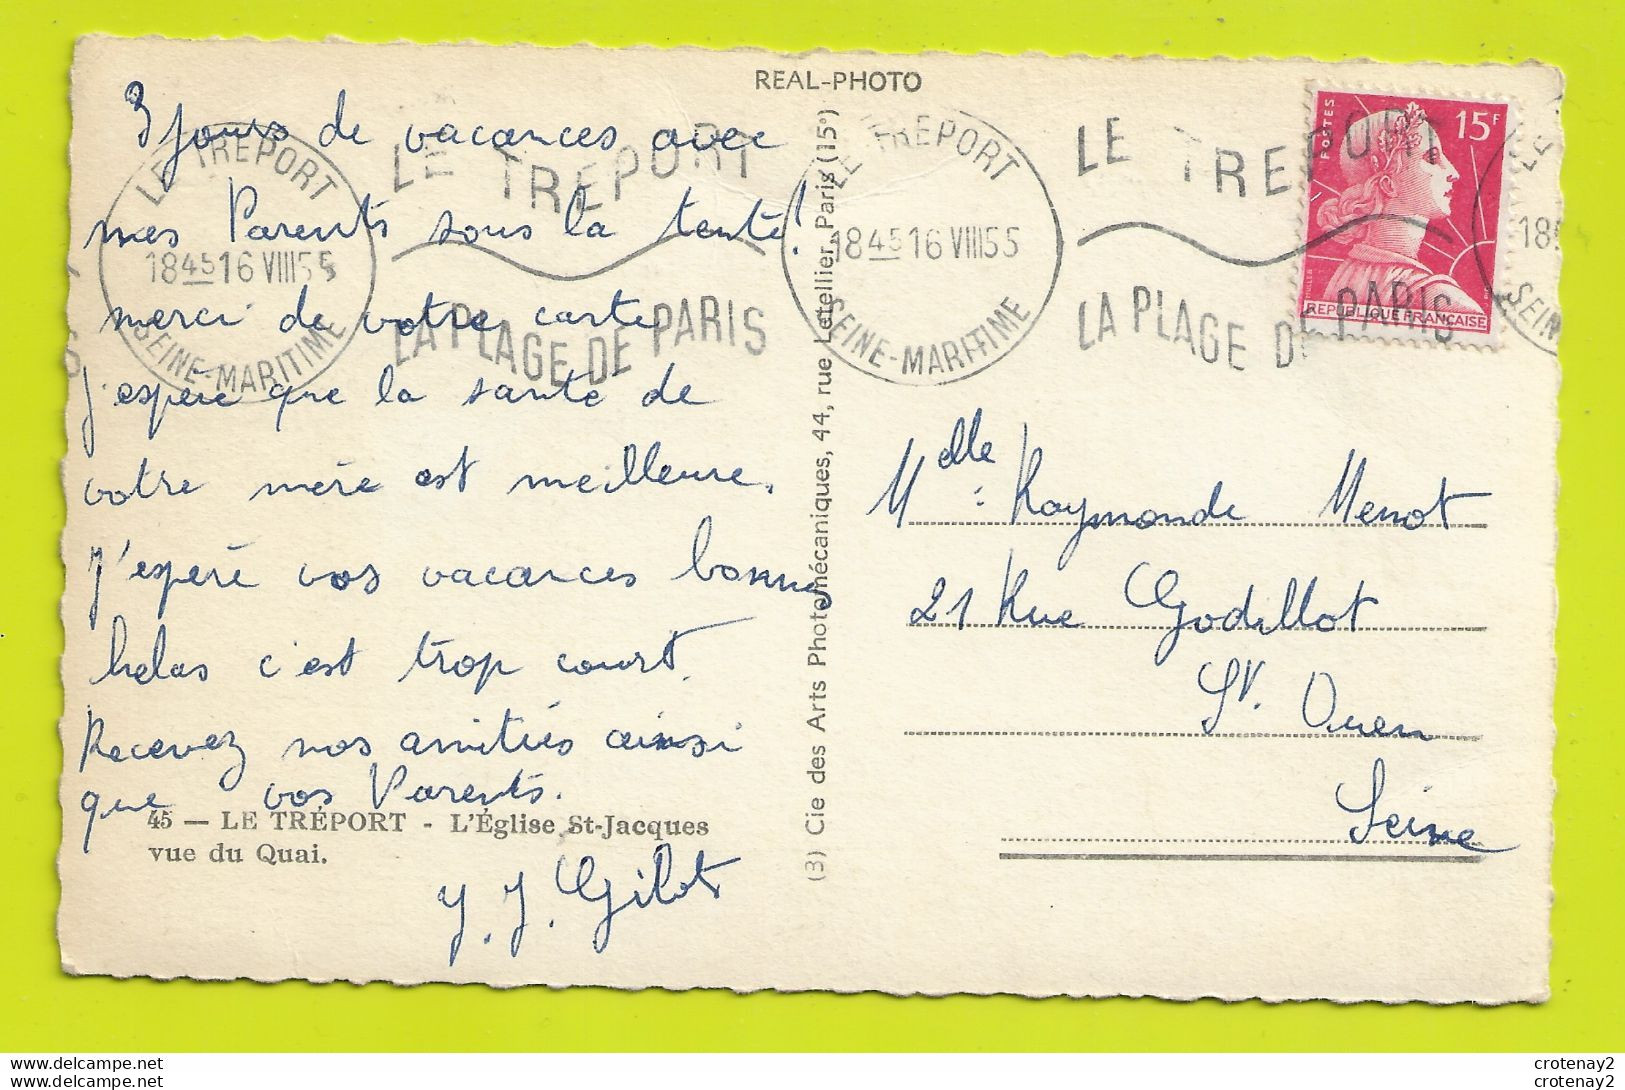 REAL-PHOTO
3 jours de vacances avec
mes Parents sous la tente!
merci de votre carte
j'espère que la santé de
votre mère est meilleure.
J'espère vos vacances bonnes
helas c'est trop court.
Recevez nos amitiés ainsi
que vos Parents.
45 — LE TRÉPORT - L'Église St-Jacques
vue du Quai.
LE TREPORT
1845 16 VIII 55
SEINE-MARITIME
LE TREPORT
LA PLAGE DE PARIS
LE TREPORT
1845 16 VIII 55
SEINE-MARITIME
LE TREPORT
LA PLAGE DE PARIS
POSTES
15F
REPUBLIQUE FRANÇAISE
(3) Cie des Arts Photomécaniques, 44, rue Letellier, Paris (15e)
Melle Raymonde Menot
21 Rue Godillot
St. Ouen
Seine
crotenay2
crotenay2
crotenay2
crotenay2